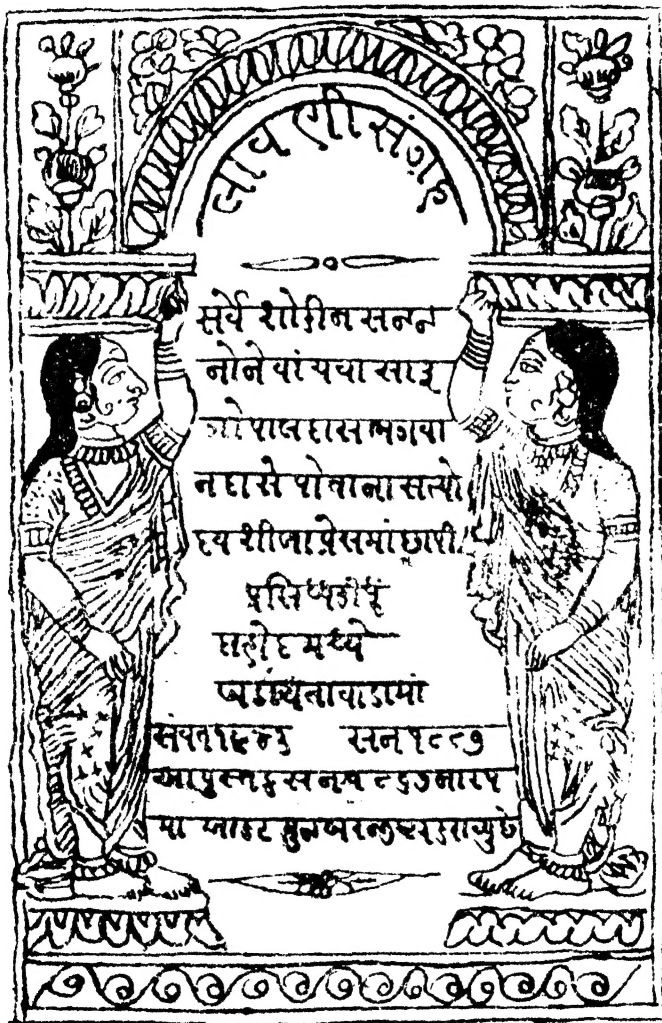 લાવણીસંગ્રહ
સર્વે શોકીન સજ્જન
નોને વાંચવા સારૂ
ગોપાલદાસ ભગવા
નદાસે પોતાના સત્યો
દય શીલા પ્રેસમાં છાપી
પ્રસિધ્ધકીધું
મધ્યે
વાડામાં
સંવત૧૯૪૩ સન ૧૮૮૭
આ પુસ્તક સન ૧૮૬૭ના ૨૫
મા આકટ મુજબ રજીષ્ટર કરાવ્યુ છે